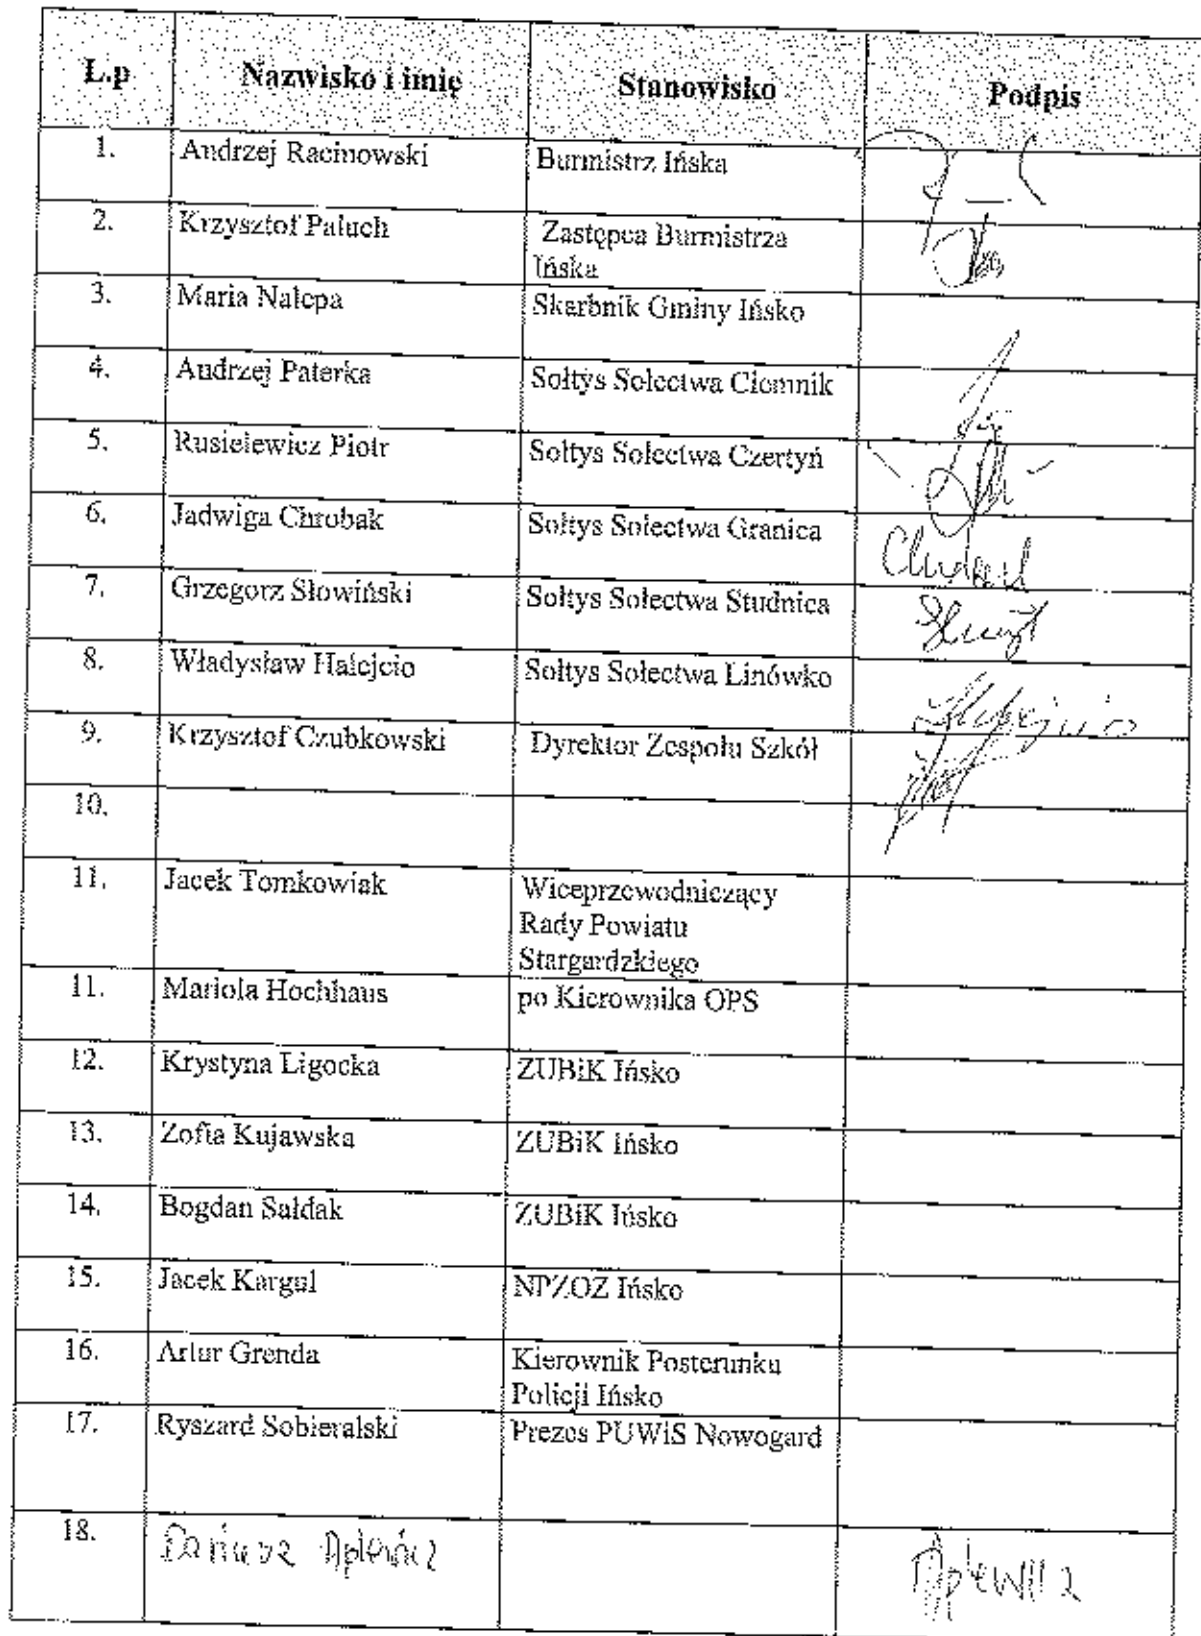 L.p Nazwisko i imię Stanowisko Podpis
1. Andrzej Racinowski Burmistrz Ińska
2. Krzysztof Paluch Zastępca Burmistrza
Ińska
3. Maria Nalepa Skarbnik Gminy Ińsko
4. Andrzej Paterka Sołtys Sołectwa Ciemnik
5. Rusielewicz Piotr Sołtys Sołectwa Czertyń
6. Jadwiga Chrobak Sołtys Sołectwa Granica
7. Grzegorz Słowiński Sołtys Sołectwa Studnica
8. Władysław Halejcio Sołtys Sołectwa Linówko
9. Krzysztof Czubkowski Dyrektor Zespołu Szkół
10.
11. Jacek Tomkowiak Wiceprzewodniczący
Rady Powiatu
Stargardzkiego
11. Mariola Hochhaus po Kierownika OPS
12. Krystyna Ligocka ZUBiK Ińsko
13. Zofia Kujawska ZUBiK Ińsko
14. Bogdan Sałdak ZUBiK Ińsko
15. Jacek Kargul NPZOZ Ińsko
16. Artur Grenda Kierownik Posterunku
Policji Ińsko
17. Ryszard Sobieralski Prezes PUWiS Nowogard
18.